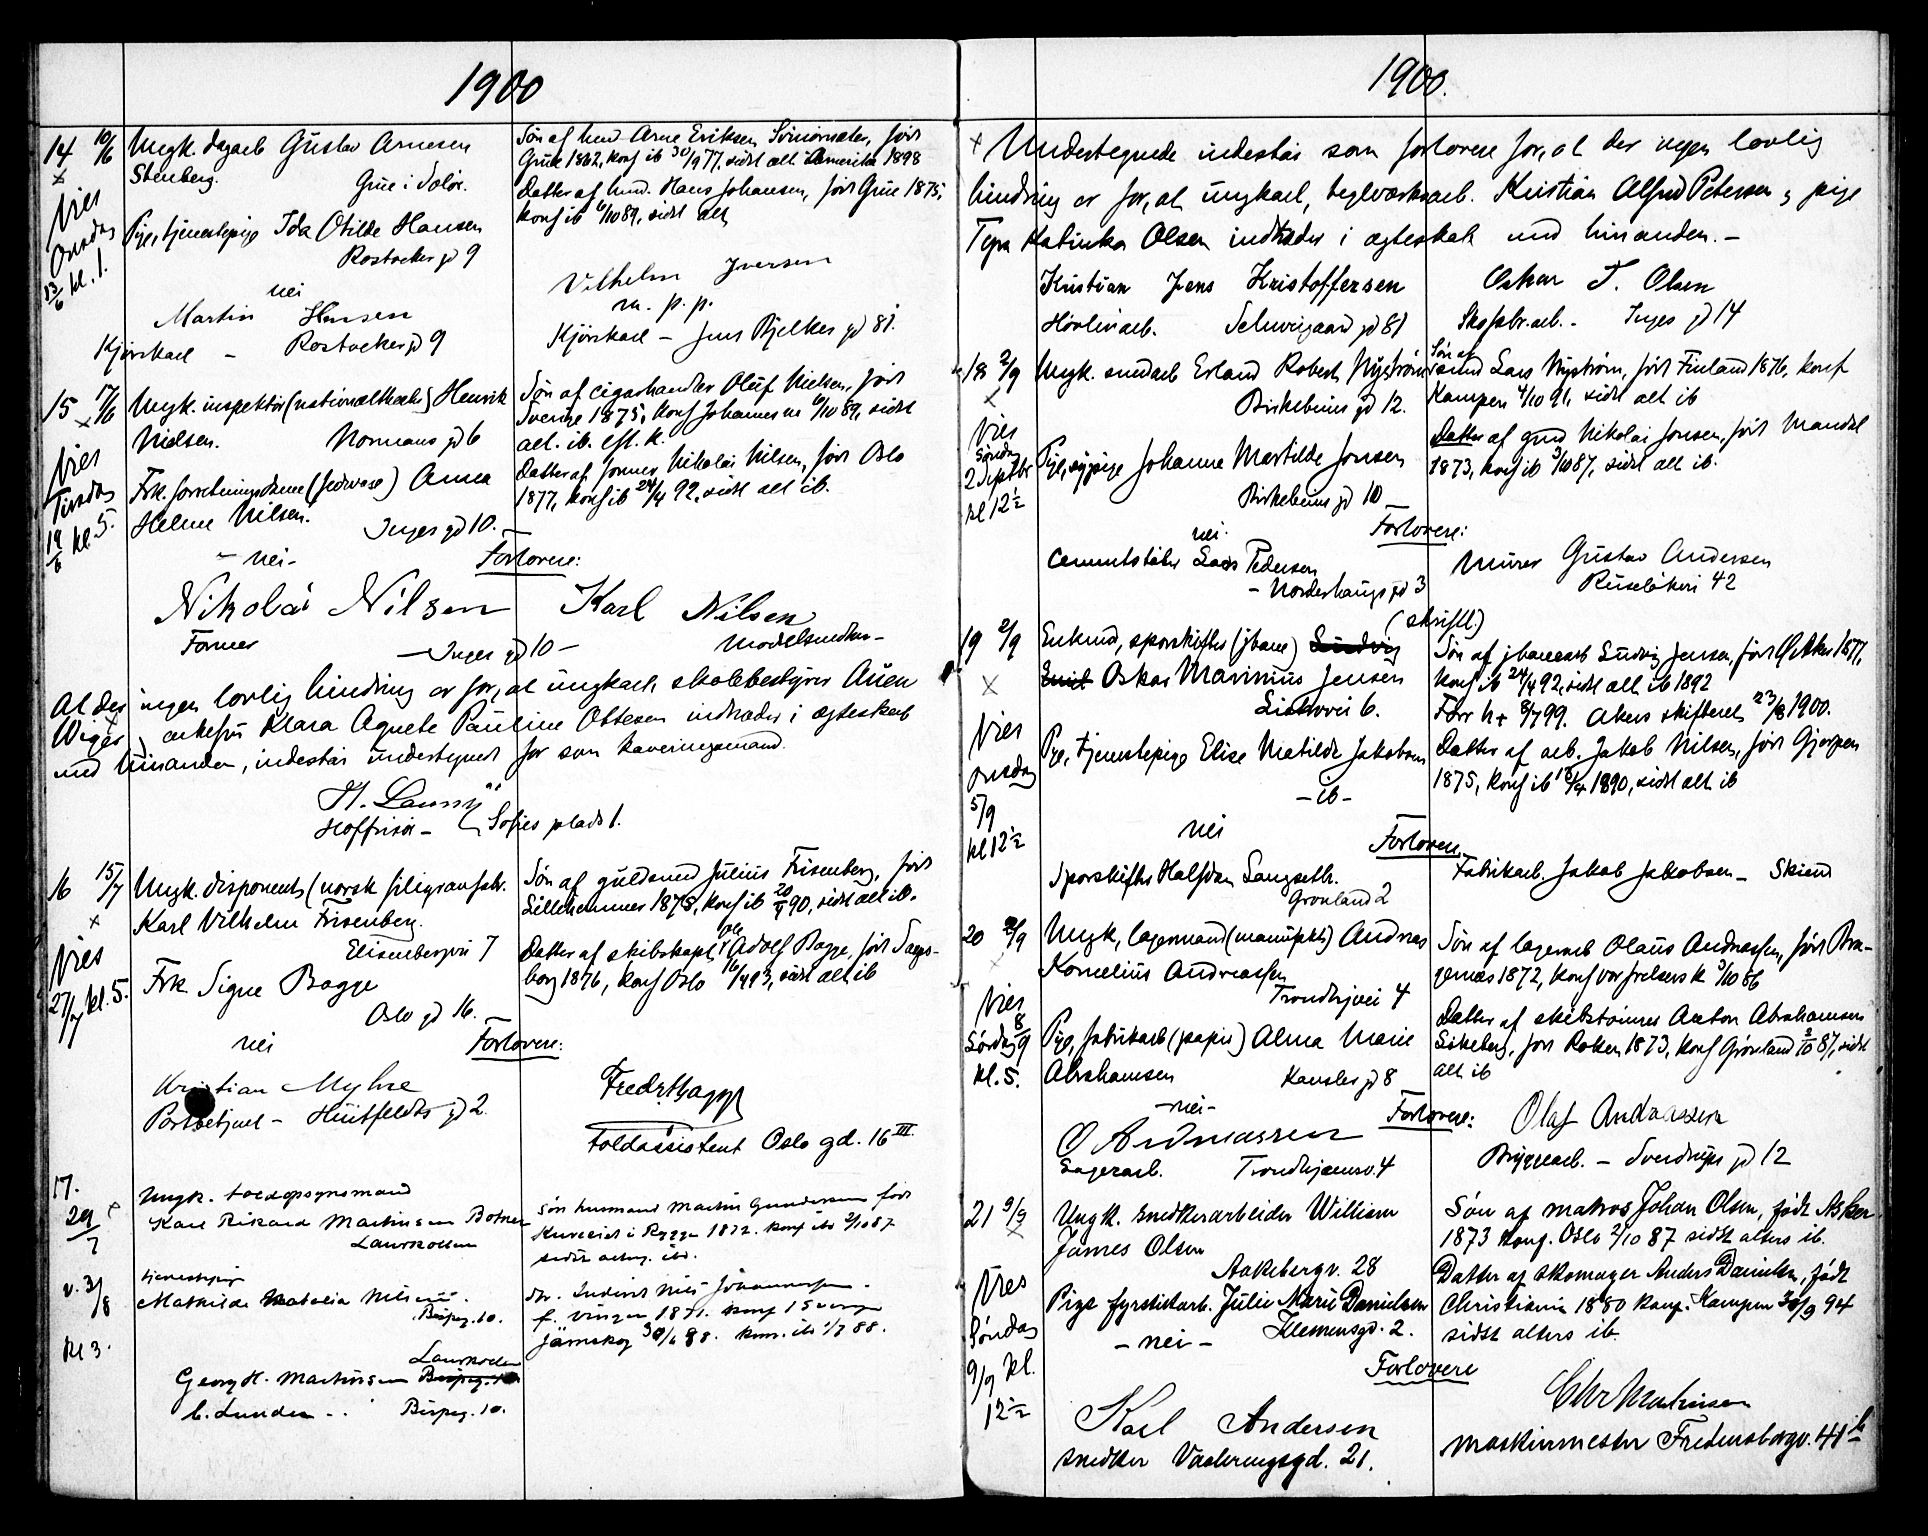 1900
14 10/6 Ungk. dagarb Gustav Arnesen
Stenberg. Grue i Solør.
Søn af husm. Arne Eriksen, født
Grue 1862, konf ib 30/9 77, sidst alt. Amerika 1898
Datter af husm. Hans Johansen, født Grue 1875,
konf ib 6/10 89, sidst alt
Vies
Onsdag
13/6 kl. 1.
Pige, tjenestepige Ida Otilde Hansen
Rostocker gd 9
nei
Martin Hansen
Kjørekarl - Rostocker gd 9
Vilhelm Iversen
m. p. p.
Kjørekarl - Jens Bjelkes gd 81.
15 17/6 Ungk. inspektør (nationaltheatr.) Henrik
Nielsen. Normans gd 6
Søn af cigarhandler Oluf Nielsen, født
Sverige 1875, konf Johannes m 6/10 89, sidst
alt. ib. eft. k.
Vies
Tirsdag
19/6 kl 5.
Frk. forretningsdame Anna
Helene Nilsen. Inges gd 10.
Datter af former Nikolai Nilsen, født Oslo
1877, konf ib 24/4 92, sidst alt ib.
- nei - Forlovere:
Nikolai Nilsen Karl Nilsen
Former - Inges gd 10 - Modelsnedker -
At der ingen lovlig hindring er for, at ungkarl, skolebestyrer Åsen
Wiger og enkefru Klara Agnete Pauline Ottesen indtræder i ægteskab
med hinanden, indestår undertegnet for som kaveringsmand.
Hoffrisør - Sofies plads 1.
16 15/7 Ungk. disponent (norsk filigransfabr.
Karl Vilhelm Frisenberg.
Elisenbergvei 7
Søn af guldsmed Julius Frisenberg, født
Lillehammer 1875, konf ib 90, sidst alt ib.
Vies
27/7 kl. 5.
Frk Signe Bagge
Oslo gd 16.
Datter af skibskapt. Ole Adolf Bagge, født Sarps-
borg 1876, konf Oslo 16/4 93, sidst alt ib
nei Forlovere:
Kristian Myhre
Postbetjent - Huitfeldts gd 2.
Fredr. Bagge
Toldassistent Oslo gd. 16 III.
17.
29/7
Ungk. toldopsynsmand
Karl Rikard Martinsen Botner
Laurkollen
Søn husmand Martin Gundersen født
i Rygge 1872. konf ibd 2/10 87
sidst alterg. ibd.
v. 3/8
kl 3.
tjenestepige
Mathilde Natalia Nilsen.
Bispeg. 10.
Dtr. Nils Johannesen -
f. Vinger 1871. konf i Sverige
Järnskog 88. kom. ib 1/7 88.
Georg H. Martinsen Laurkollen
L. Lunden - . Bispeg. 10.
1900.
x Undertegnede indestår som forlovere for, at der ingen lovlig
hindring er for, at ungkarl, teglværksarb. Kristian Alfred Petersen og pige
Tyra Katinka Olsen indtræder i ægteskab med hinanden. -
Kristian Jens Kristoffersen Oskar T. Olsen
Høvleriarb. Schweigaard gd 81 Skofabr.arb. - Inges gd 14
18 2/9 Ungk. smedarb Erland Robert Nyström
Birkebeiner gd 12.
Søn af
smed Lars Nyström, født Finland 1876, konf
Kampen 4/10 91, sidst alt ib
Vies
Søndag
2 Septbr
kl 12½
Pige, sypige Johanne Martilde Jonsen
Birkebeiner gd 10
Datter af grd Nikolai Jonsen, født Mandal
1873, konf ib 3/10 87, sidst alt ib.
nei. Forlovere:
Cementstøber Lars Pedersen
- Norderhaugs gd 3
Murer Gustav Andersen
Ruseløkvei 42
(skriftl.)
19 2/9 Enkemd, sporskifter (jbane) Ludvig
Emil Oskar Marinius Jensen
Liakovei 6.
Søn af jbanearb Ludvig Jensen, født Ø. Aker 1877,
konf ib 24/4 92, sidst alt ib 1892
Forr h + 8/7 99. Akers skifteret 23/8 1900.
Vies
Onsdag
5/9
kl 12½
Pige, tjenestepige Elise Matilde Jakobsen
- ib -
Datter af arb. Jakob Nilsen, født Gjerpen
1875, konf ib 13/4 1890, sidst alt ib
nei Forlovere
Sporskifter Halfdan Langseth.
Grønland 2
Fabrikarb. Jakob Jakobsen - Skien
20 2/9 Ungk, lagermand (manufakt.) Andreas
Kornelius Andreassen
Trondhjvei 4
Søn af lagerarb Olaus Andreassen, født Bra-
gernæs 1872, konf Vor frelsers k 3/10 86
Vies
Lørdag 8/9
kl. 5.
Pige, fabrikarb (papir) Alma Marie
Abrahamsen Kansler gd 8
Datter af skibstømmer Anton Abrahamsen
Sikeberg, født Rakken 1873, konf Grønland 2/10 87, sidst
alt ib
- nei - Forlovere:
O Andreassen
Lagerarb. Trondhjemsv. 4
Olaf Andreassen
Bryggearb. - Sverdrups gd 12
21 9/9 Ungk. snedkerarbeider William
James Olsen
Aakebergv. 28
Søn af matros Johan Olsen, født Asker
1873 konf. Oslo 2/10 87 sidst alters ib.
Vies
Søndag
9/9 kl.
12½
Pige fyrstikarb. Julie Marie Danielsen
- nei - Klemensgd. 2.
Datter af skomager Anders Danielsen, født
Christiania 1880 konf. Kampen 30/9 94
sidst alters ib.
Forlovere
Karl Andersen
Snedker Vaalerenggd. 21.
Chr Martinsen
Maskinmester Fredensborgv. 41 b